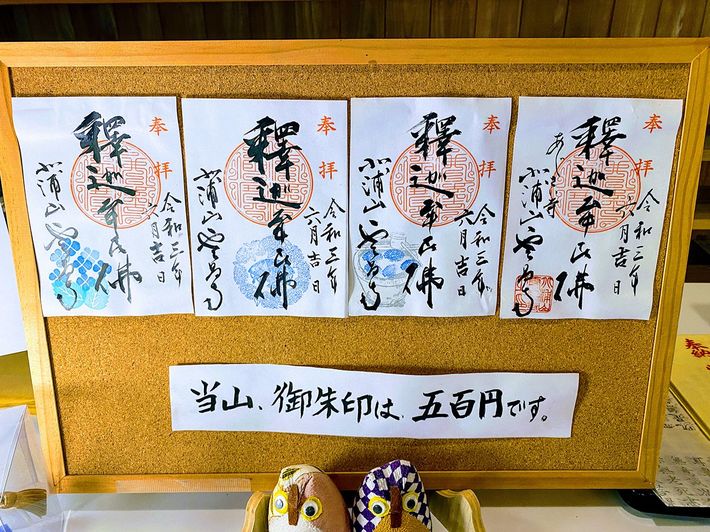 奉拝
釋迦牟尼佛
令和三年
六月吉日
北浦山雲昌寺
奉拝
釋迦牟尼佛
令和三年
六月吉日
北浦山雲昌寺
奉拝
釋迦牟尼佛
令和三年
六月吉日
北浦山雲昌寺
奉拝
釋迦牟尼佛
令和三年
六月吉日
あじさい寺
北浦山雲昌寺
当山、御朱印は、五百円です。